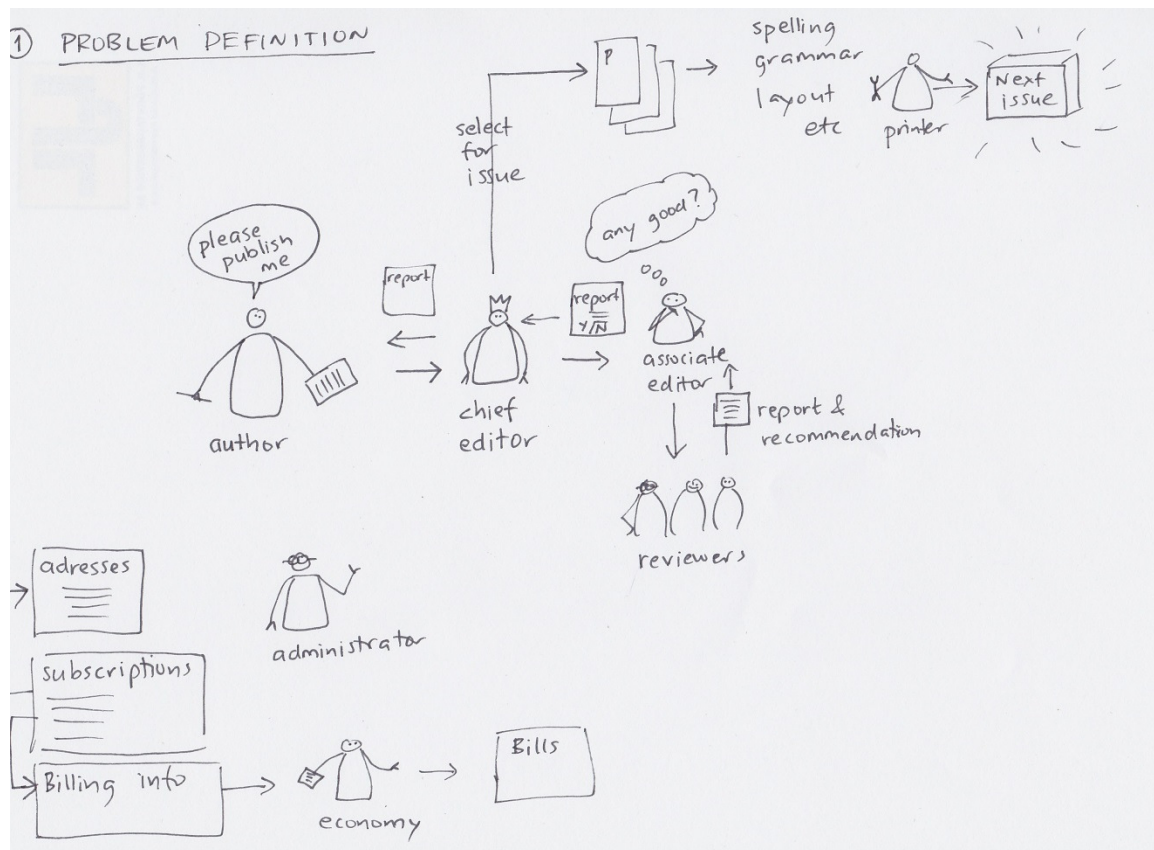 1 PROBLEM DEFINITION
P
spelling
grammar
layout
etc
printer
Next
issue
select
for
issue
any good?
please
publish
me
report
report
Y/N
associate
editor
chief
editor
author
report &
recommendation
reviewers
adresses
administrator
subscriptions
Billing info
Bills
economy